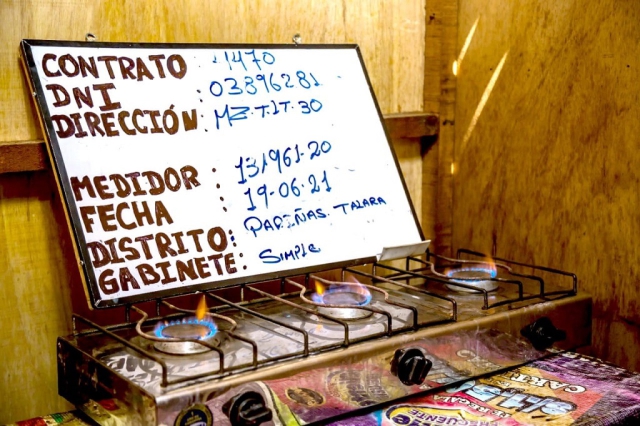 CONTRATO : 1470
DNI : 03896281
DIRECCIÓN : MZ.T.LT 30
MEDIDOR : 131961-20
FECHA : 19-06-21
DISTRITO : PARIÑAS. TALARA
GABINETE : SIMPLE
REGAL
CUENTE
CART